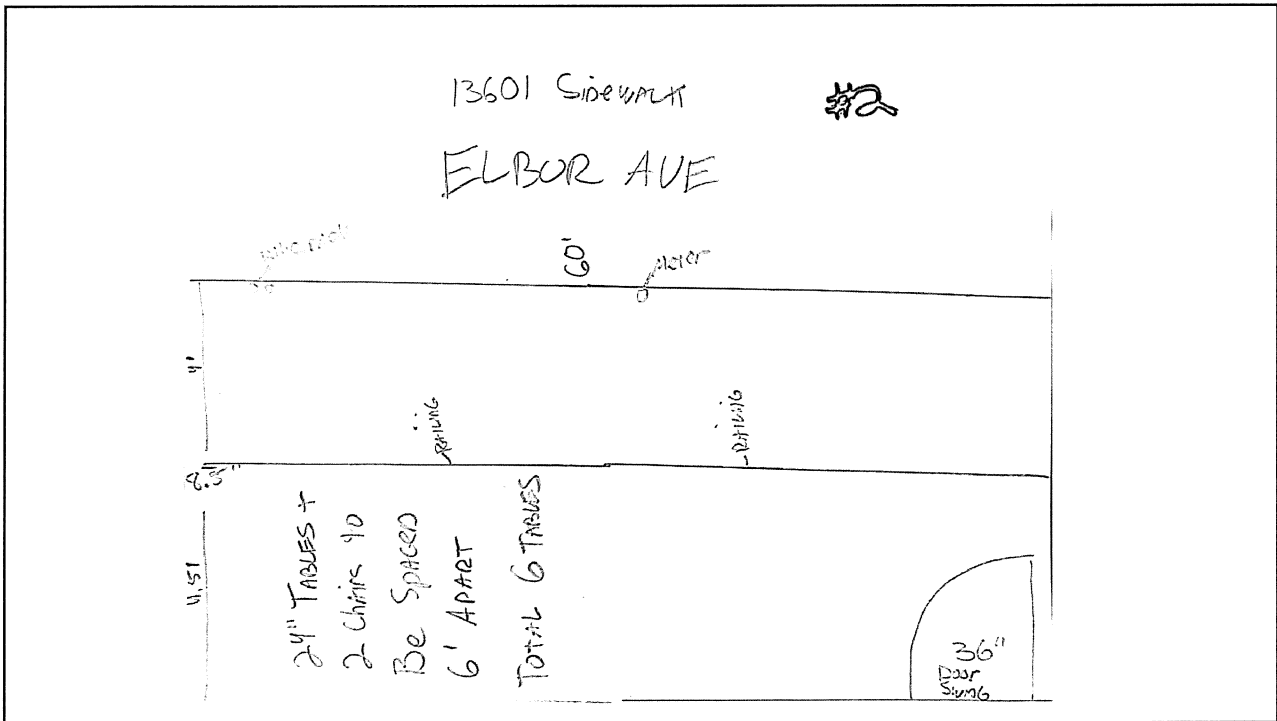 13601 Sidewalk
#2
ELBUR AVE
60'
Meter
4'
RAILING
RAILING
8.5"
24" TABLES +
2 Chairs to
Be SPACED
6' APART
TOTAL 6 TABLES
36"
Door
Swing